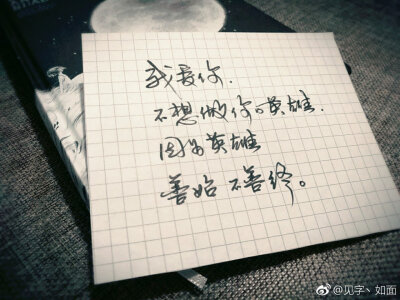 我爱你.
不想做你的英雄.
因为英雄
善始不善终。
@见字丶如面